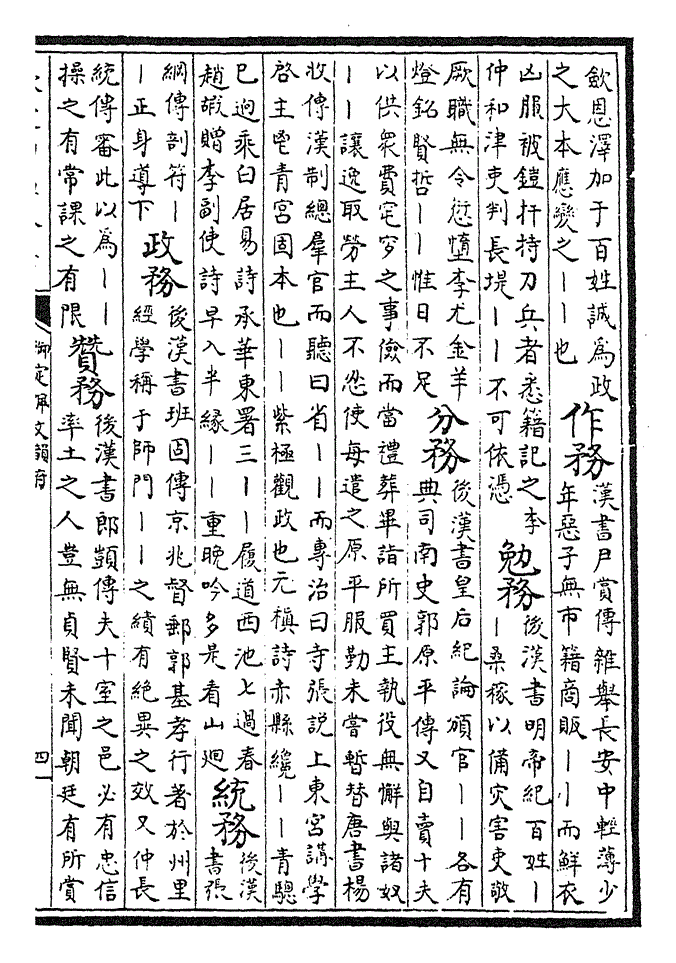 歛恩澤加于百姓誠為政
之大本應變之||也
作務
漢書尹賞傳雜舉長安中輕薄少
年惡子無市籍商販||而鮮衣
凶服被鎧扞持刀兵者悉籍記之李
仲和津吏判長堤||不可依憑
勉務
後漢書明帝紀百姓|
|桑稼以備灾害吏敬
厥職無令愆墮李尤金羊
燈銘賢哲||惟日不足
分務
後漢書皇后紀論頒官||各有
典司南史郭原平傳又自賣十夫
以供衆費窀穸之事儉而當禮葬畢詣所買主執役無懈與諸奴
||讓逸取勞主人不忍使每遣之原平服勤未嘗暫替唐書楊
收傳漢制總羣官而聽曰省||而專治曰寺張説上東宮講學
啓主鬯青宮固本也||紫極觀政也元稹詩赤縣纔||青驄
已迥乘白居易詩承華東署三||履道西池七過春
趙嘏贈李副使詩早入半縁||重晚吟多是看山迴
統務
後漢
書張
綱傳剖符|
|正身導下
政務
後漢書班固傳京兆督郵郭基孝行著於州里
經學稱于師門||之績有絶異之效又仲長
統傳審此以為||
操之有常課之有限
贊務
後漢書郎顗傳夫十室之邑必有忠信
率土之人豈無貞賢未聞朝廷有所賞
御定佩文韻府
四一